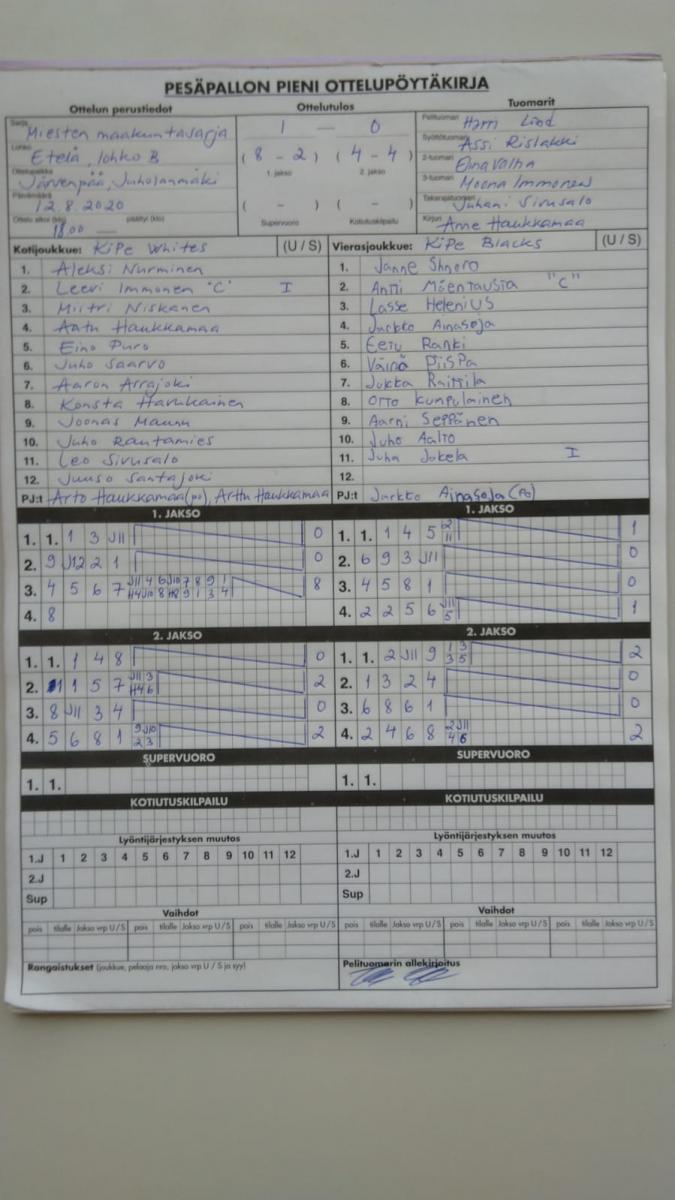 PESÄPALLON PIENI OTTELUPÖYTÄKIRJA
Ottelun perustiedot Ottelutulos Tuomarit
Sarja Miesten maakuntasarja
Lohko Etelä, lohko B
Ottelupaikka Järvenpää, Juholanmäki
Päivämäärä 12.8.2020
Ottelu alkoi (klo) 18.00 päättyi (klo) —
1 — 0
( 8 - 2 ) ( 4 - 4 )
1. jakso 2. jakso
( - ) ( - )
Supervuoro Kotiutuskilpailu
Pelituomari Harri Lind
Syöttötuomari Assi Rislakki
2-tuomari Elina Valha
3-tuomari Moona Immonen
Takarajatuomari Juhani Sivusalo
Kirjuri Anne Haukkamaa
Kotijoukkue: KiPe Whites (U / S)
1. Aleksi Nurminen
2. Leevi Immonen "C" I
3. Miitri Niskanen
4. Aatu Haukkamaa
5. Eino Puro
6. Juho Saarvo
7. Aaron Arrajoki
8. Konsta Harukkainen
9. Joonas Maunu
10. Juho Rautamies
11. Leo Sivusalo
12. Juuso Santajoki
PJ:t Arto Haukkamaa (po), Arttu Haukkamaa
Vierasjoukkue: KiPe Blacks (U / S)
1. Janne
2. Anti Mäentausta "C"
3. Lasse Helenius
4. Jarkko Ainasoja
5. Eetu Ranki
6. Väinö Piispa
7. Jukka Raittila
8. Otto Kumpulainen
9. Aarni Seppänen
10. Juho Aalto
11. Juha Jokela I
12.
PJ:t Jarkko Ainasoja (po)
1. JAKSO
1. 1. 1 3 J11 0
2. 9 J12 2 1 0
3. 4 5 6 7 8
4. 8
2. JAKSO
1. 1. 1 4 8 0
2. 1 1 5 7 J11 3 2
H4 6
3. 8 J11 3 4 0
4. 5 6 8 1 9 J10 2
2 3
SUPERVUORO
1. 1.
KOTIUTUSKILPAILU
Lyöntijärjestyksen muutos
1.J 1 2 3 4 5 6 7 8 9 10 11 12
2.J
Sup
Vaihdot
pois tilalle Jakso vrp U / S pois tilalle Jakso vrp U / S pois tilalle Jakso vrp U / S
Rangaistukset (joukkue, pelaaja nro, jakso vrp U / S ja syy)
1. JAKSO
1. 1. 1 4 5 2 1
11
2. 6 9 3 J11 0
3. 4 5 8 1 0
4. 2 2 5 6 J11 1
5
2. JAKSO
1. 1. 2 J11 9 1 3 2
3 5
2. 1 3 2 4 0
3. 6 8 6 1 0
4. 2 4 6 8 2 J11 2
4 6
SUPERVUORO
1. 1.
KOTIUTUSKILPAILU
Lyöntijärjestyksen muutos
1.J 1 2 3 4 5 6 7 8 9 10 11 12
2.J
Sup
Vaihdot
pois tilalle Jakso vrp U / S pois tilalle Jakso vrp U / S pois tilalle Jakso vrp U / S
Pelituomarin allekirjoitus